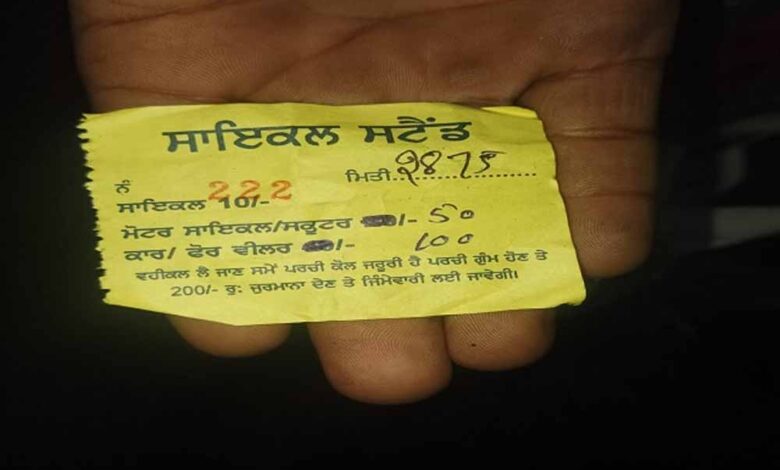 ਸਾਇਕਲ ਸਟੈਂਡ
ਨੰ 222 ਮਿਤੀ.......2875
ਸਾਇਕਲ 10/-
ਮੋਟਰ ਸਾਇਕਲ/ਸਕੂਟਰ /- 50
ਕਾਰ/ ਫੋਰ ਵੀਲਰ /- 100
ਵਹੀਕਲ ਲੈ ਜਾਣ ਸਮੇਂ ਪਰਚੀ ਕੋਲ ਜਰੂਰੀ ਹੈ ਪਰਚੀ ਗੁੰਮ ਹੋਣ ਤੇ
200/- ਰੁ: ਜੁਰਮਾਨਾ ਦੇਣ ਤੇ ਜਿੰਮੇਵਾਰੀ ਲਈ ਜਾਵੇਗੀ।